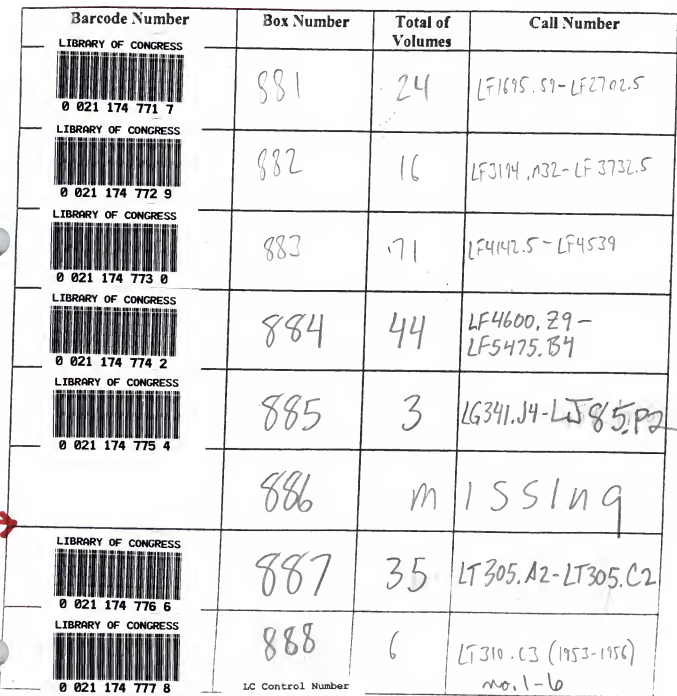 Barcode Number Box Number Total of Volumes Call Number
LIBRARY OF CONGRESS
0 021 174 771 7
881 24 LF1695.S9-LF2702.5
LIBRARY OF CONGRESS
0 021 174 772 9
882 16 LF3194.n32-LF3732.5
LIBRARY OF CONGRESS
0 021 174 773 0
883 71 LF4142.5-LF4539
LIBRARY OF CONGRESS
0 021 174 774 2
884 44 LF4600.Z9-
LF5475.B4
LIBRARY OF CONGRESS
0 021 174 775 4
885 3 LG341.J4-LJ85.P2
886 missing
LIBRARY OF CONGRESS
0 021 174 776 6
887 35 LT305.A2-LT305.C2
LIBRARY OF CONGRESS
0 021 174 777 8
888 6 LT310.C3 (1953-1956)
no.1-6
LC Control Number